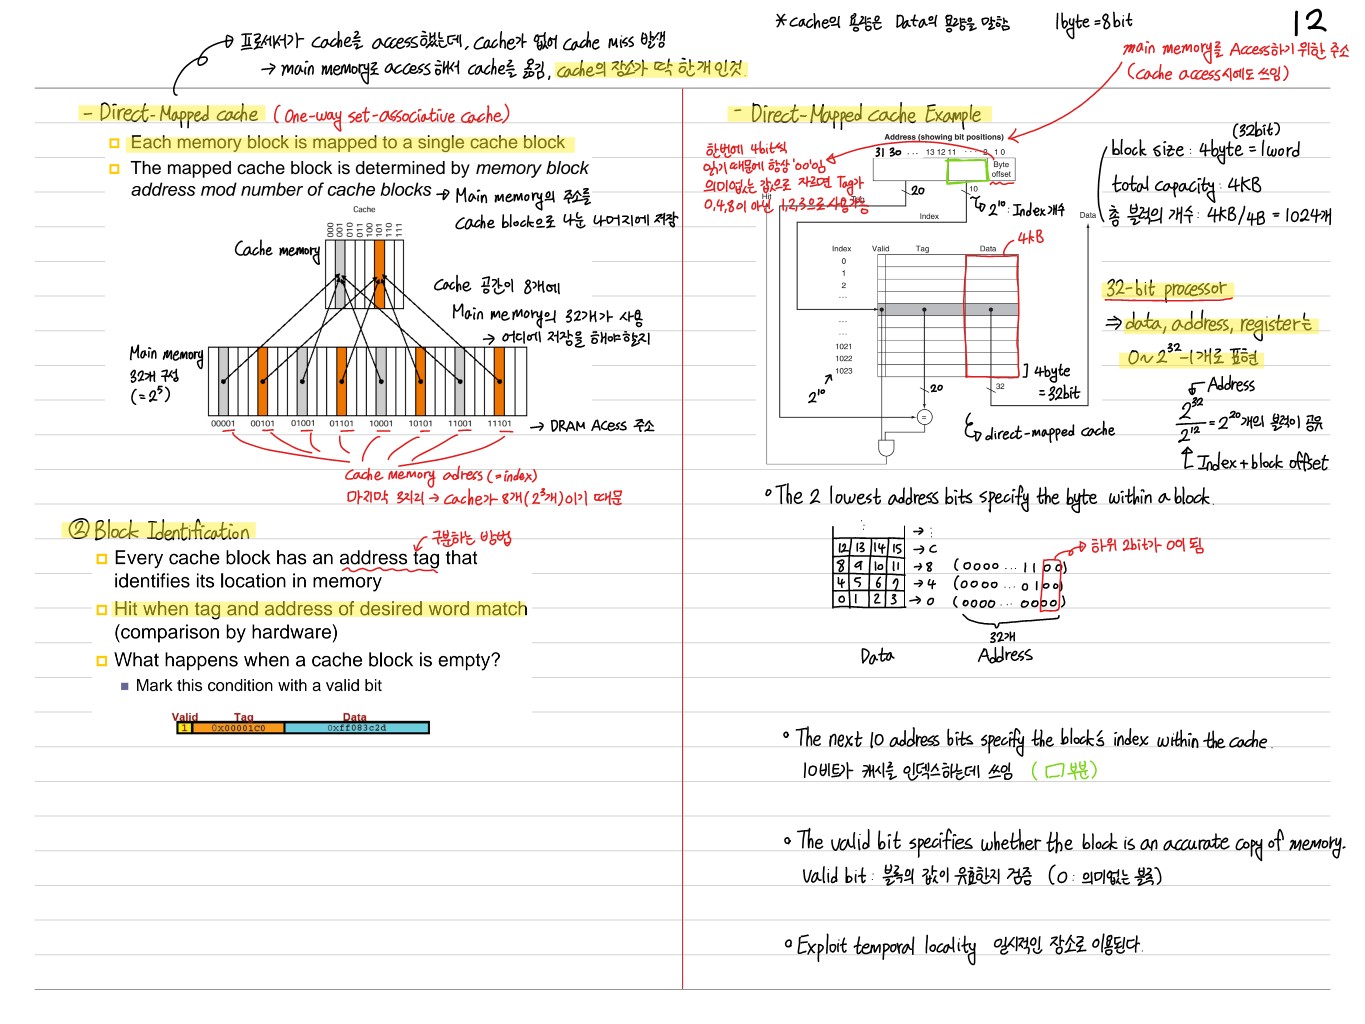 *Cache의 용량은 Data의 용량을 말함
1byte=8bit
12
프로세서가 cache를 access했는데, cache가 없어 cache miss 발생
→ main memory로 access 해서 cache를 옮김, cache의 장소가 딱 한개인것.
main memory를 Access하기 위한 주소
(cache access시에도 쓰임)
- Direct-Mapped cache (One-way set-associative cache)
Each memory block is mapped to a single cache block
The mapped cache block is determined by memory block
address mod number of cache blocks → Main memory의 주소를
cache block으로 나눈 나머지에 저장
Cache
000 001 010 011 100 101 110 111
Cache memory
Cache 공간이 8개에
Main memory의 32개가 사용
→ 어디에 저장을 해야할지
Main memory
32개 구성
(=2⁵)
00001 00101 01001 01101 10001 10101 11001 11101 → DRAM Acess 주소
Cache memory adress (=index)
마지막 3자리 → Cache가 8개(2³개)이기 때문
② Block Identification
구분하는 방법
Every cache block has an address tag that
identifies its location in memory
Hit when tag and address of desired word match
(comparison by hardware)
What happens when a cache block is empty?
Mark this condition with a valid bit
Valid Tag Data
1 0x00001c0 0xff083c2d
- Direct-Mapped cache Example
Address (showing bit positions)
31 30 ... 13 12 11 ... 2 1 0
Byte
offset
한번에 4bit씩
읽기 때문에 항상 '00'임
의미없는 값으로 자르면 Tag가
0,4,8이 아닌 1,2,3으로 사용가능
Hit
20
10
2¹⁰: Index개수
Index
Data
4kB
Index Valid Tag Data
0
1
2
...
...
...
1021
1022
1023
2¹⁰
20
32
=
] 4byte
= 32bit
direct-mapped cache
(32bit)
block size : 4byte = 1word
total capacity : 4KB
총 블럭의 개수 : 4KB/4B = 1024개
32-bit processor
⇒ data, address, register는
0~2³²-1개로 표현
Address
2³²/2¹² = 2²⁰개의 블럭이 공유
Index + block offset
∘ The 2 lowest address bits specify the byte within a block.
하위 2bit가 0이 됨
⋮ → ⋮
12 13 14 15 → C
8 9 10 11 → 8 (0000 ... 1100)
4 5 6 7 → 4 (0000 ... 0100)
0 1 2 3 → 0 (0000 ... 0000)
32개
Data Address
∘ The next 10 address bits specify the block's index within the cache.
10비트가 캐시를 인덱스하는데 쓰임 (□부분)
∘ The valid bit specifies whether the block is an accurate copy of memory.
Valid bit : 블록의 값이 유효한지 검증 (0 : 의미없는 블록)
∘ Exploit temporal locality 일시적인 장소로 이용된다.